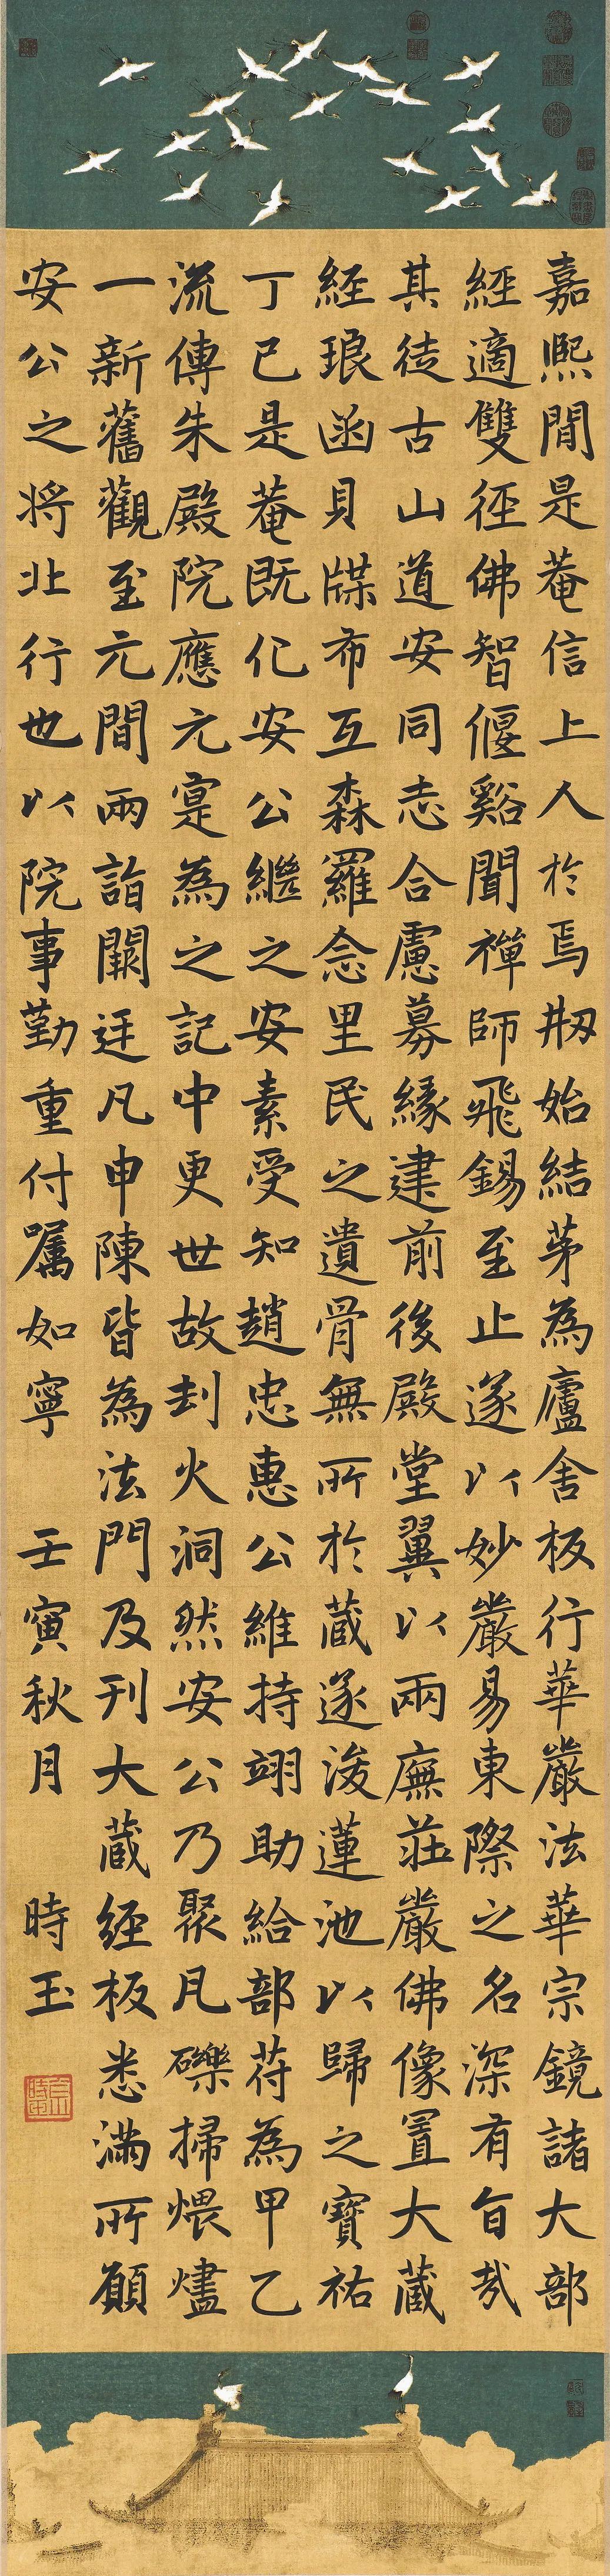 嘉熈閒是菴信上人於焉刱始結茅為廬舍板行華嚴法華宗鏡諸大部
經適雙徑佛智偃谿聞禪師飛錫至止遂以妙嚴易東際之名深有旨哉
其徒古山道安同志合慮募緣建前後殿堂翼以兩廡莊嚴佛像置大藏
經琅函貝牒布互森羅念里民之遺骨無所於藏遂浚蓮池以歸之寶祐
丁巳是菴既化安公繼之安素受知趙忠惠公維持翊助給部苻為甲乙
流傳朱殿院應元寔為之記中更世故刦火洞然安公乃聚凡礫掃煨燼
一新舊觀至元間兩詣闕廷凡申陳皆為法門及刊大藏經板悉滿所願
安公之將北行也以院事勤重付囑如寧 壬寅秋月 時玉